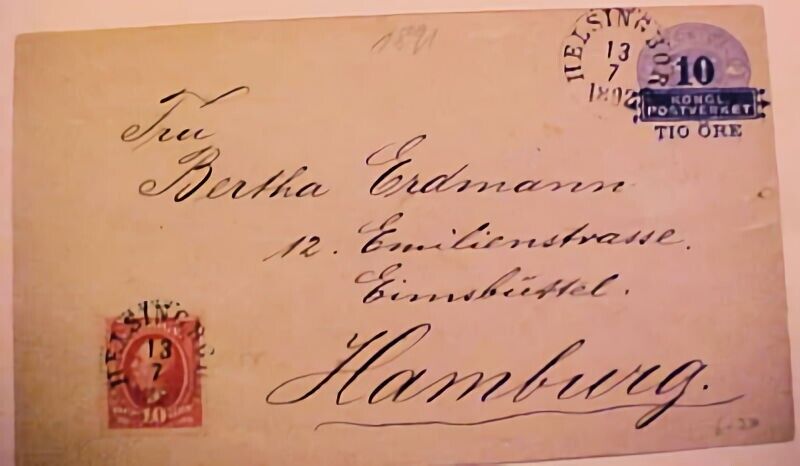 1891
HELSINGBOR
13
7
1892
10
KONGL.
POSTVERKET
TIO ÖRE
Fru
Bertha Erdmann
12. Emilienstrasse.
Eimsbüttel.
Hamburg.
HELSINGBOR
13
7
10